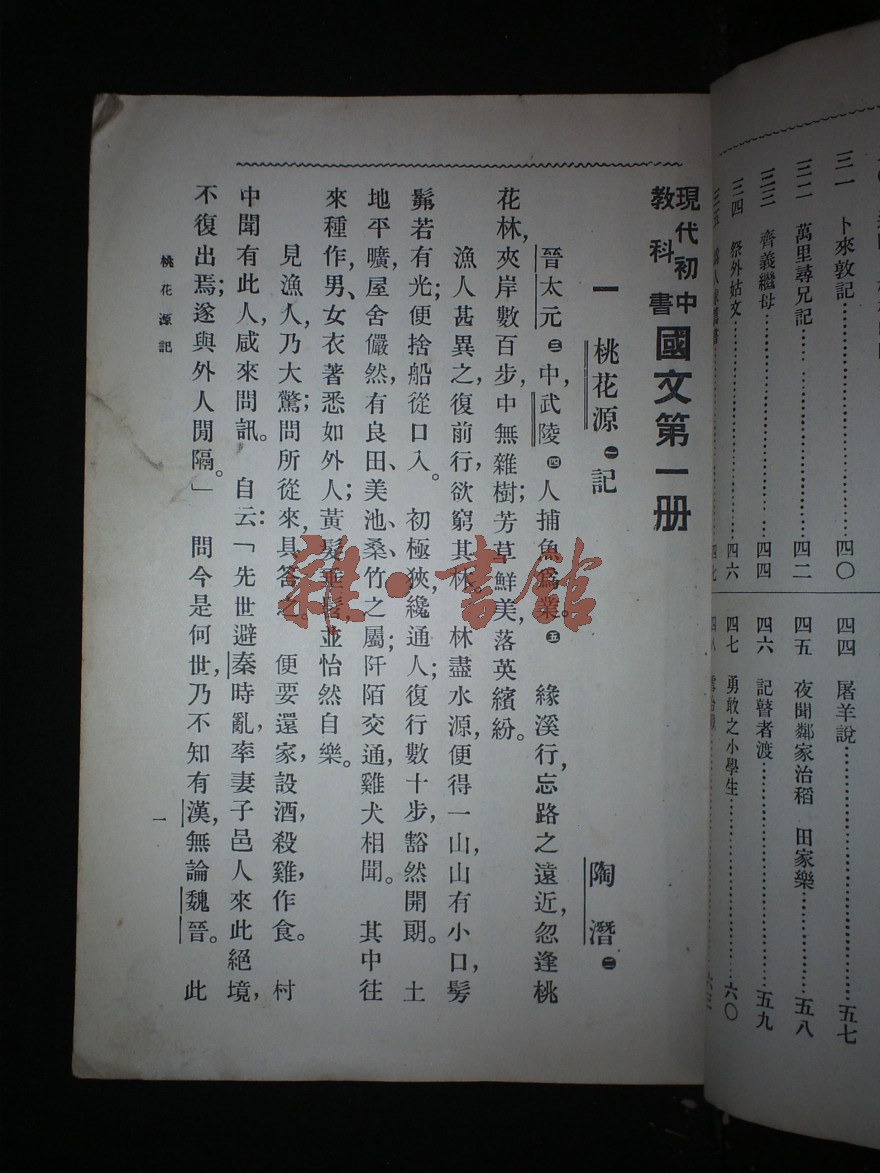 三一　卜來敦記⋯⋯四〇
三二　萬里尋兄記⋯⋯四二
三三　齊義繼母⋯⋯四四
三四　祭外姑文⋯⋯四六
三五　⋯⋯四七
四四　屠羊說⋯⋯五七
四五　夜聞鄰家治稻　田家樂⋯⋯五八
四六　記瞽者渡⋯⋯五九
四七　勇敢之小學生⋯⋯六〇
四八
現代初中教科書國文第一册
一　桃花源㊀記　陶潛㊁
晉太元㊂中，武陵㊃人捕魚爲業。㊄　緣溪行，忘路之遠近，忽逢桃
花林，夾岸數百步，中無雜樹；芳草鮮美，落英繽紛。
漁人甚異之，復前行，欲窮其林。　林盡水源，便得一山，山有小口，髣
髴若有光；便捨船從口入。　初極狹，纔通人；復行數十步，豁然開朗。　土
地平曠，屋舍儼然，有良田、美池、桑、竹之屬；阡陌交通，雞犬相聞。　其中往
來種作，男、女衣著悉如外人；黃髮垂髫，並怡然自樂。
見漁人，乃大驚；問所從來，具答之。　便要還家，設酒，殺雞，作食。　村
中聞有此人，咸來問訊。　自云：「先世避秦時亂，率妻子邑人來此絕境，
不復出焉；遂與外人閒隔。」　問今是何世，乃不知有漢，無論魏晉。　此
桃花源記
一
雜·書館